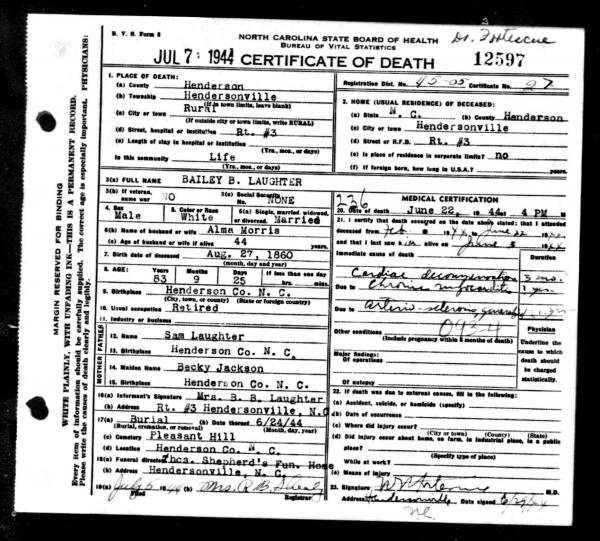 B. V. S. Form 8
NORTH CAROLINA STATE BOARD OF HEALTH
BUREAU OF VITAL STATISTICS
Dr. Fortescue
JUL 7 1944 CERTIFICATE OF DEATH 12597
Registration Dist. No. 45-05 Certificate No. 97
1. PLACE OF DEATH:
(a) County Henderson
(b) Township Hendersonville
(If in town limits, leave blank)
(c) City or town Rural
(If outside city or town limits, write RURAL)
(d) Street, hospital or institution Rt. #3
(e) Length of stay in hospital or institution
(Yrs., mos., or days)
In this community Life
(Yrs., mos., or days)
2. HOME (USUAL RESIDENCE) OF DECEASED:
(a) State N. C. (b) County Henderson
(c) City or town Hendersonville
(d) Street or R.F.D. Rt. #3
(e) Is place of residence in corporate limits? no
(f) If foreign born, how long in U.S.A.?
3(a) FULL NAME BAILEY B. LAUGHTER
3(b) If veteran, name war NO 3(c) Social Security No. NONE
4. Sex Male 5. Color or Race White 6(a) Single, married, widowed, divorced Married
6(b) Name of husband or wife Alma Morris
6(c) Age of husband or wife if alive 44 years
7. Birth date of deceased Aug. 27, 1860
(month, day and year)
8. AGE: Years 83 Months 9 Days 25 If less than one day hrs. min.
9. Birthplace Henderson Co. N. C.
(City, town, or county) (State or foreign country)
10. Usual occupation Retired
11. Industry or business
FATHER
12. Name Sam Laughter
13. Birthplace Henderson Co. N. C.
MOTHER
14. Maiden Name Becky Jackson
15. Birthplace Henderson Co. N. C.
16(a) Informant's Signature Mrs. B. B. Laughter
(b) Address Rt. #3 Hendersonville, N.C
17(a) Burial (b) Date thereof 6/24/44
(Burial, cremation, or removal) (Month, day, year)
(c) Cemetery Pleasant Hill
(d) Location Henderson Co. N. C.
18(a) Funeral director Thos. Shepherd's Fun. Home
(b) Address Hendersonville, N. C.
19(a) July 5 1944 (b) Mrs. R. B.
Filed Registrar
236 MEDICAL CERTIFICATION
20. Date of death June 22, 1944 4 PM
21. I certify that death occurred on the date above stated; that I attended
deceased from Feb. 1944 June 22 1944
and that I saw him alive on June 1944
Immediate cause of death Duration
Cardiac decompensation 3 mo.
Due to Chronic myocarditis 1 yr.
Due to arterio-sclerosis general
Other conditions 0934
(Include pregnancy within 3 months of death)
Physician
Major findings:
Of operations
Of autopsy
Underline the cause to which death should be charged statistically.
22. If death was due to external causes, fill in the following:
(a) Accident, suicide, or homicide (specify)
(b) Date of occurrence
(c) Where did injury occur?
(City or town) (County) (State)
(d) Did injury occur about home, on farm, in industrial place, in a public place?
(Specify type of place)
While at work?
(e) Means of injury
23. Signature M.D.
Address Hendersonville Date signed 6/25/44
NC
MARGIN RESERVED FOR BINDING
WRITE PLAINLY, WITH UNFADING INK—THIS IS A PERMANENT RECORD.
Every item of information should be carefully supplied. The correct age is especially important. PHYSICIANS:
Please write the causes of death clearly and legibly.